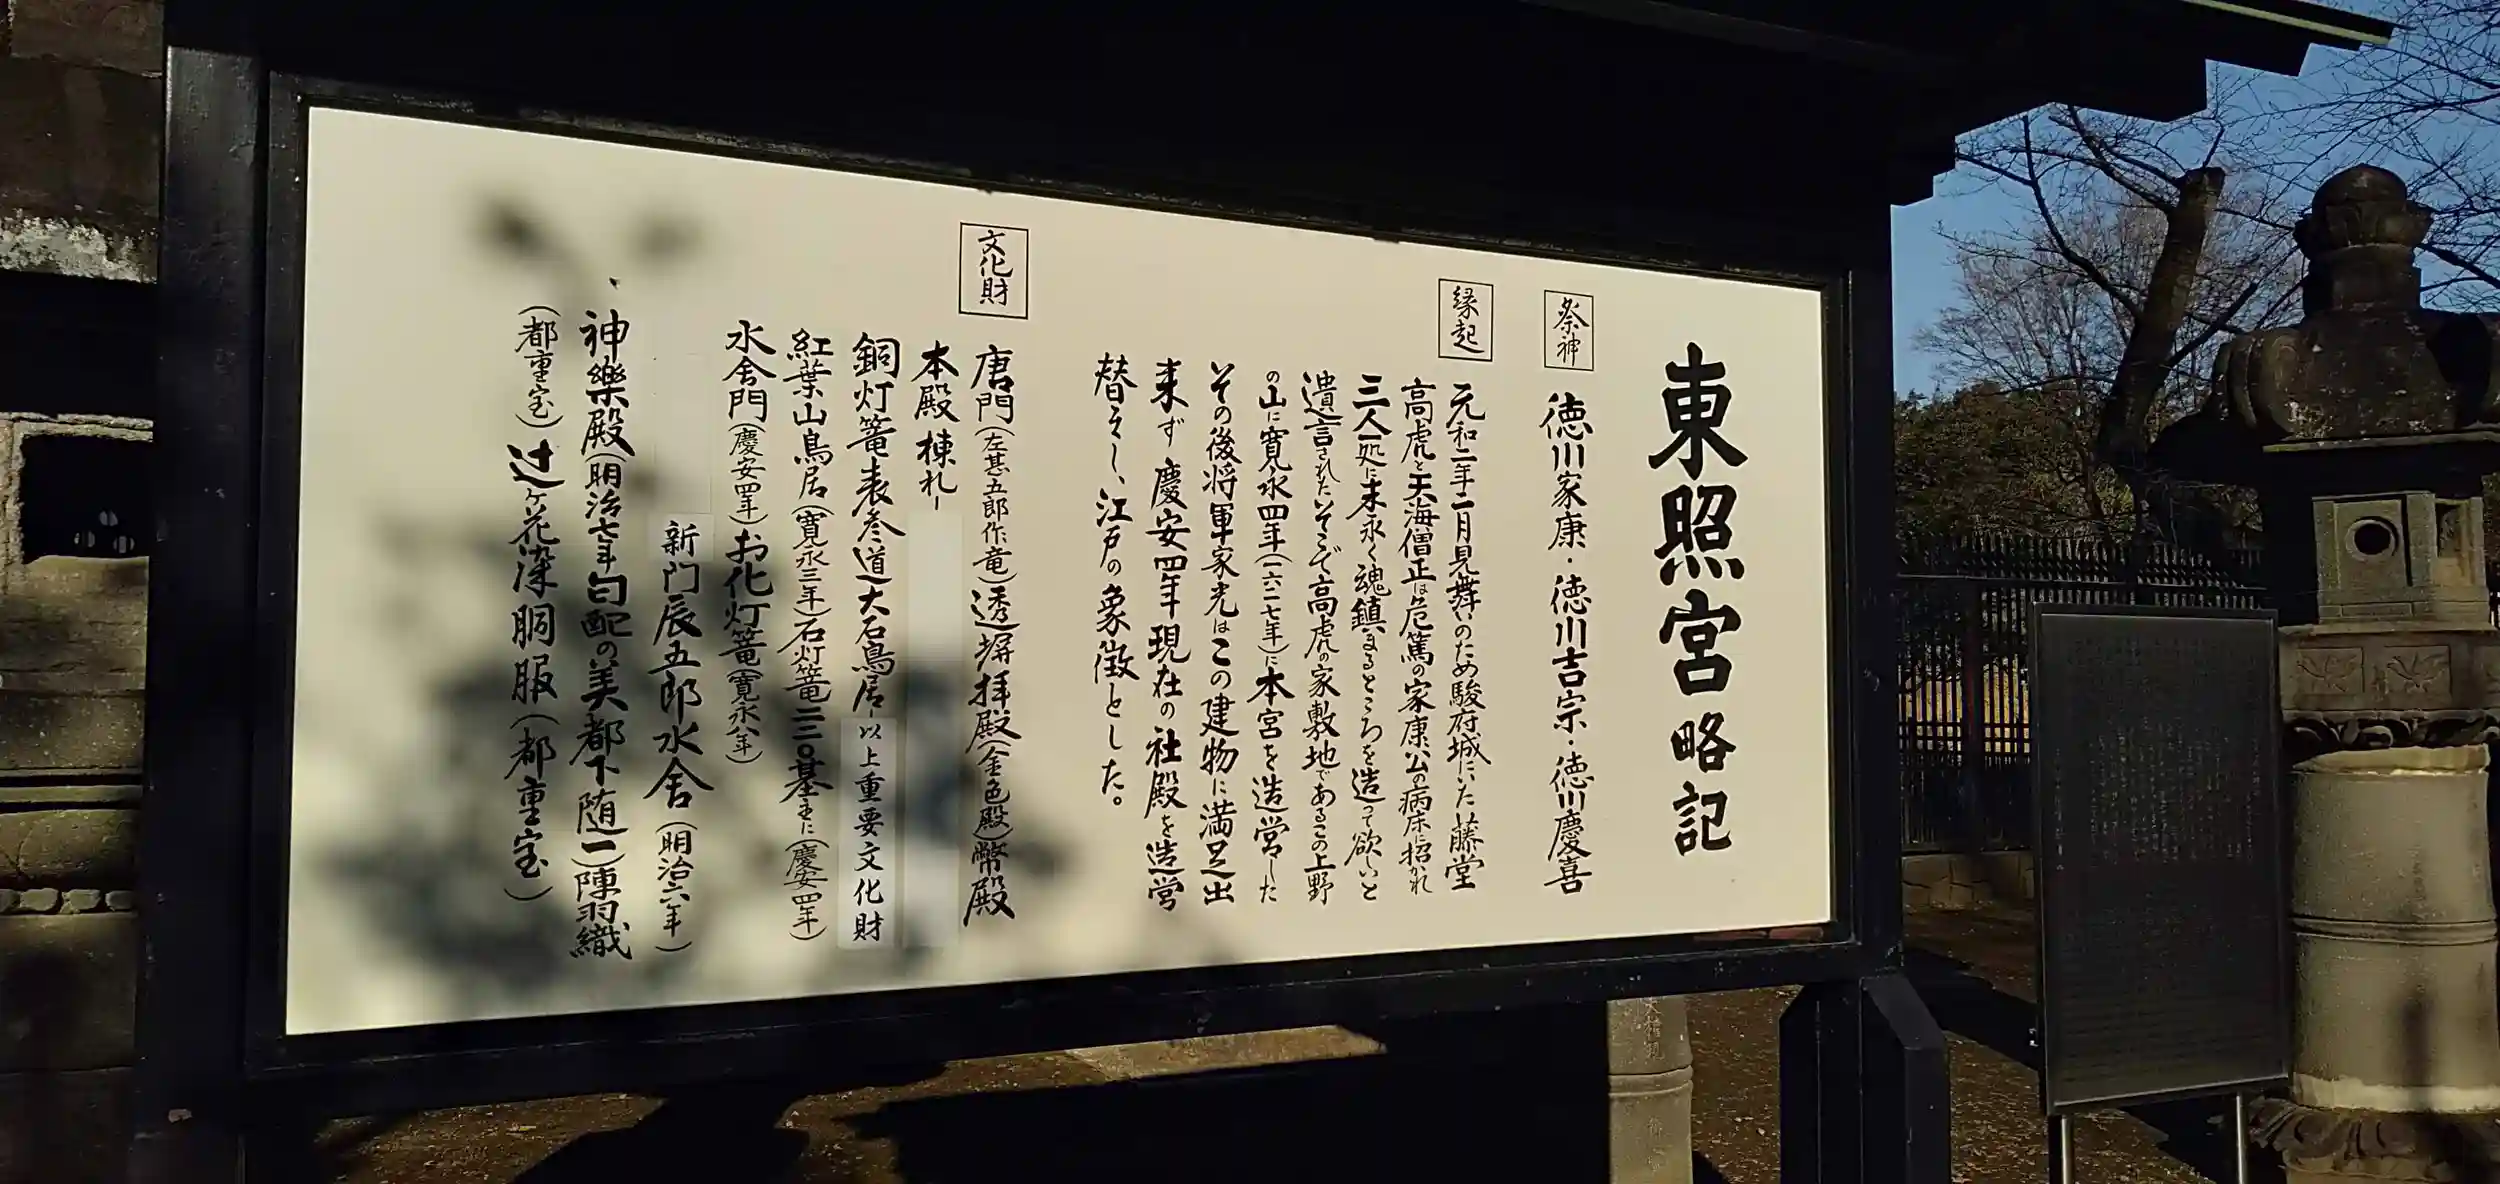 東照宮略記
祭神
徳川家康・徳川吉宗・徳川慶喜
縁起
元和二年二月見舞いのため駿府城にいた藤堂
高虎と天海僧正は危篤の家康公の病床に招かれ
三人一処に末永く魂鎮まるところを造って欲しいと
遺言されたいそこで高虎の家敷地であるこの上野
の山に寛永四年(一六二七年)に本宮を造営した
その後将軍家光はこの建物に満足出
来ず慶安四年現在の社殿を造営
替えし、江戸の象徴とした。
文化財
唐門(左甚五郎作竜)透塀拝殿(金色殿)幣殿
本殿棟札
銅灯篭表参道大石鳥居 以上重要文化財
紅葉山鳥居(寛永三年)石灯篭二三〇基主に(慶安四年)
水舎門(慶安四年)お化灯篭(寛永八年)
新門辰五郎水舎(明治六年)
神樂殿(明治七年勾配の美都下随一)陣羽織
(都重宝)辻ヶ花染胴服(都重宝)